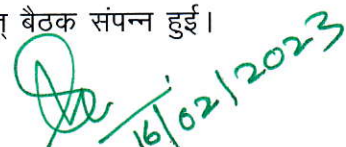 ् बैठक संपन्न हुई।
16/02/2023